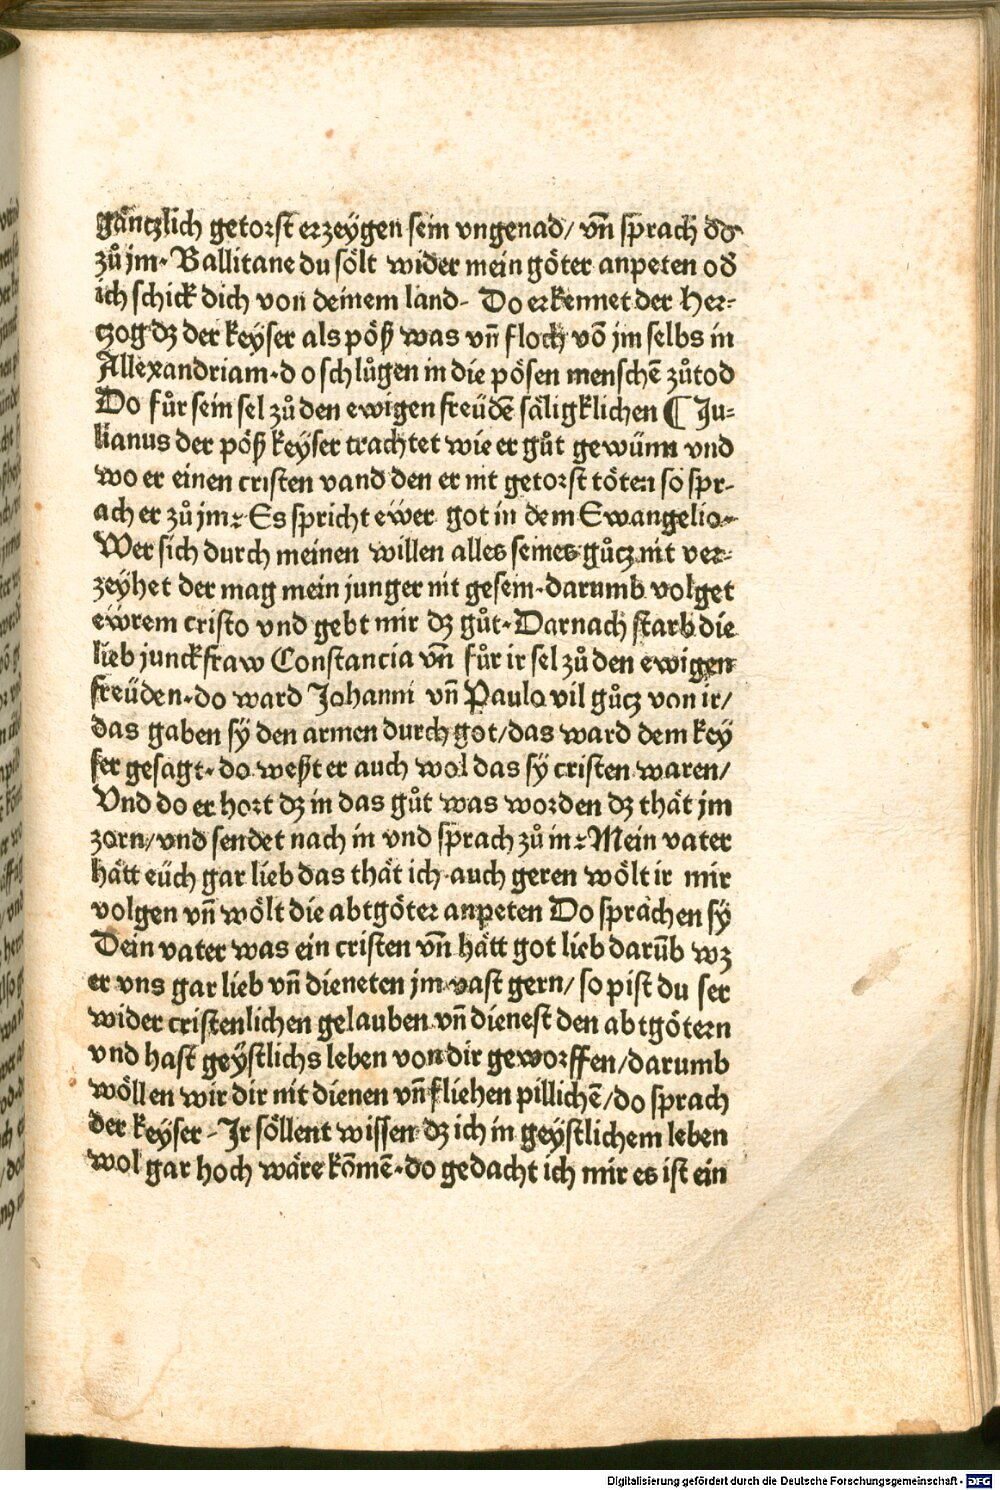 gäntzlich getorst erzeÿgen sein vngenad/ vn̄ sprach do
zů jm· Ballitane du sölt wider mein göter anpeten od̕
ich schick dich von deinem land- Do erkennet der Her⸗
czog dz der keÿser als pöß was vn̄ floch võ jm selbs in
Allexandriam·do schlůgen in die pösen menschẽ zůtod
Do fůr sein sel zů den ewigen freüdẽ säligklichen ¶ Ju⸗
lianus der pöß keÿser trachtet wie er gůt gewünn vnd
wo er einen cristen vand den er nit getorst töten so spr-
ach er zů jm: Es spricht ewer got in dem Ewangelio·
Wer sich durch meinen willen alles seines gůtz nit ver⸗
zeÿhet der mag mein junger nit gesein·darumb volget
ewrem cristo vnd gebt mir dz gůt· Darnach starb die
lieb junckfraw Constancia vn̄ fůr ir sel zů den ewigen
freüden·do ward Johanni vn̄ Paulo vil gůtz von ir/
das gaben sÿ den armen durch got/das ward dem keÿ
ser gesagt·do weßt er auch wol das sÿ cristen waren/
Vnd do er hort dz in das gůt was worden dz thät jm
zorn/vnd sendet nach in vnd sprach zů in: Mein vater
hätt eüch gar lieb das thät ich auch geren wölt ir mir
volgen vn̄ wölt die abtgöter anpeten Do sprächen sÿ
Dein vater was ein cristen vn̄ hätt got lieb darũb wz
er vns gar lieb vn̄ dieneten jm vast gern/ so pist du ser
wider cristenlichen gelauben vn̄ dienest den abtgötern
vnd hast geÿstlichs leben von dir geworffen/darumb
wöllen wir dir nit dienen vn̄ fliehen pillichẽ/do sprach
der keÿser- Jr söllent wissen dz ich in geÿstlichem leben
wol gar hoch wäre kõmẽ·do gedacht ich mir es ist ein
Digitalisierung gefördert durch die Deutsche Forschungsgemeinschaft - DFG